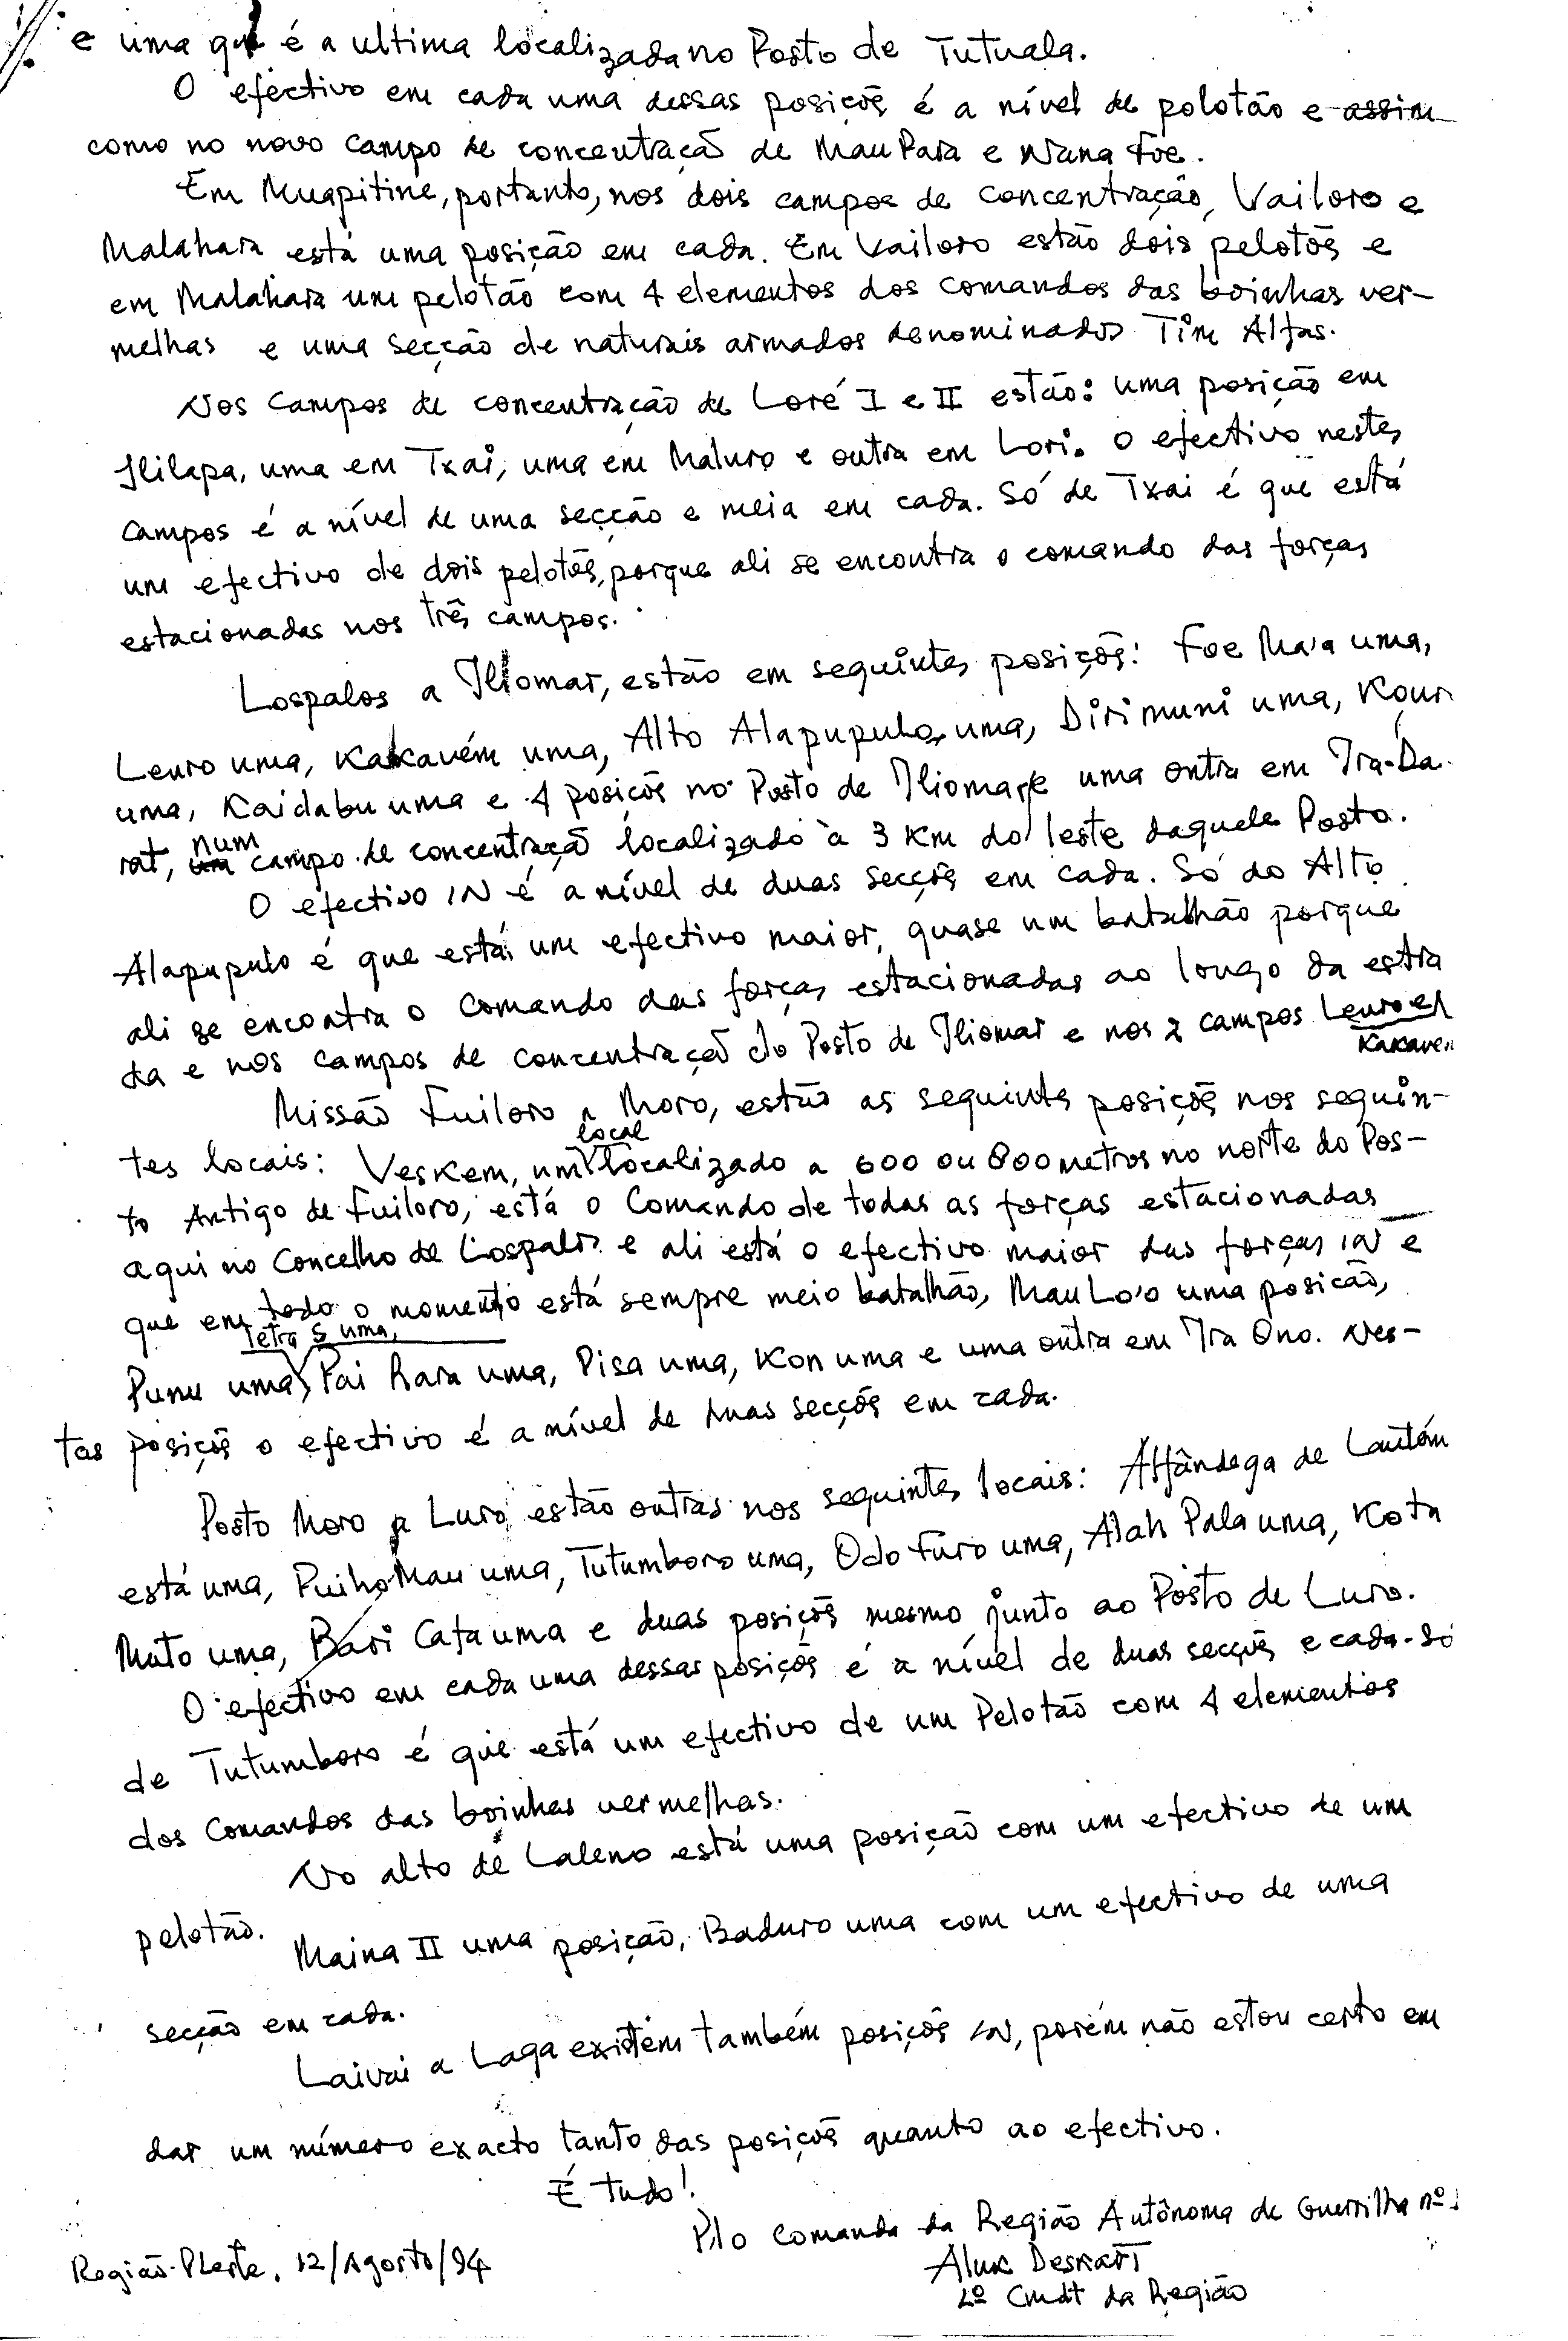 e uma que é a ultima localizada no Posto de Tutuala.
O efectivo em cada uma dessas posiçõs é a nível de polotão e assim
como no novo campo de concentraçã de Mau Para e Nana Foe.
Em Muapitine, portanto, nos dois campos de concentração, Vailoro e
Malahara está uma posição em cada. Em Vailoro estão dois pelotõs e
em Malahara um pelotão com 4 elementos dos comandos das boinhas ver-
melhas e uma secção de naturais armados denominados Tim Alfas.
Nos campos de concentração de Loré I e II estão: uma posição em
Ililapa, uma em Txai, uma em Maluro e outra em Lori. O efectivo nestes
campos é a nível de uma secção e meia em cada. Só de Txai é que está
um efectivo de dois pelotõs, porque ali se encontra o comando das forças
estacionadas nos três campos.
Lospalos a Iliomar, estão em seguintes posiçõs: Foe Ma'a uma,
Leuro uma, Kakavém uma, Alto Alapupulo uma, Dirimuni uma, Kour
uma, Kaidabu uma e 4 posiçõs no Posto de Iliomar e uma outra em Ira-Da
rat, num campo de concentraçã localizado à 3 Km do leste daquele Posto.
O efectivo IN é a nível de duas secçõs em cada. Só do Alto
Alapupulo é que está um efectivo maior, quase um batalhão porque
ali se encontra o comando das forças estacionadas ao longo da estra
da e nos campos de concentraçã do Posto de Iliomar e nos 2 campos Leuro e
Kakavem
Missão Fuiloro a Moro, estão as seguintes posiçõs nos seguin-
tes locais: Veskem, um local localizado a 600 ou 800 metros no norte do Pos-
to Antigo de Fuiloro, está o Comando de todas as forças estacionadas
aqui no Concelho de Lospalos e ali está o efectivo maior das forças IN e
que em todo o momento está sempre meio batalhão, Mau Lo'o uma posição,
Tetra S uma,
Punu uma, Pai Rara uma, Pisa uma, Kon uma e uma outra em Ira Ono. Nes-
tas posiçõs o efectivo é a nível de duas secçõs em cada.
Posto Moro a Luro estão outras nos seguintes locais: Alfândega de Lautém
está uma, Puiho Mau uma, Tutumboro uma, Odo Furo uma, Alah Pala uma, Kota
Muto uma, Bari Cafa uma e duas posiçõs mesmo junto ao Posto de Luro.
O efectivo em cada uma dessas posiçõs é a nível de duas secçõs e cada. Só
de Tutumboro é que está um efectivo de um Pelotão com 4 elementos
dos comandos das boinhas vermelhas.
No alto de Laleno está uma posição com um efectivo de um
pelotão.
Maina II uma posição, Baduro uma com um efectivo de uma
secção em cada.
Laivai a Laga existem também posiçõs IN, porém não estou certo em
dar um número exacto tanto das posiçõs quanto ao efectivo.
É tudo!
P'lo comando da Região Autônoma de Guerrilha nº 1
Região-Pleste, 12/Agosto/94
Alux Descart
2º Cmdt da Região